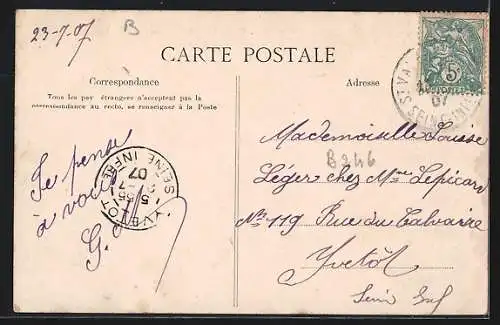 23-7-07
B
CARTE POSTALE
Correspondance
Tous les pays étrangers n'acceptent pas la
correspondance au recto, se renseigner à la Poste
Adresse
5
07
Je pense
à vous
G.
YVETOT
SEINE INFRE
07
Mademoiselle
B246
Léger chez Mme Lepicard
No 119 Rue du Calvaire
Yvetôt
Seine Inf